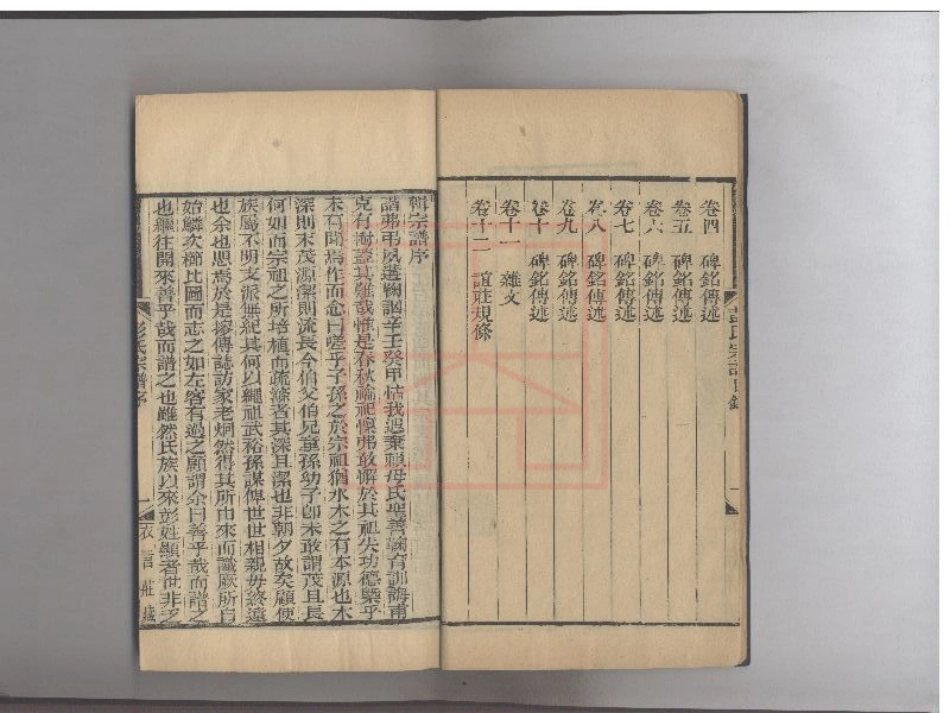 卷四　碑銘傳述
卷五　碑銘傳述
卷六　碑銘傳述
卷七　碑銘傳述
卷八　碑銘傳述
卷九　碑銘傳述
卷十　碑銘傳述
卷十一　雜文
卷十二　誼莊規條
彭氏宗譜目錄
一
輯宗譜序
譜弗弔夙遘鞠訩辛壬癸甲怙我遐棄賴母氏聖善鞠育訓誨甫
克有樹蓋其難哉惟是春秋禴祀懍弗敢懈於其祖先功德槩乎
未有聞焉作而念曰嗟乎子孫之於宗祖猶水木之有本源也木
深則末茂源潔則流長今伯父伯兄童孫幼子卽未敢謂茂且長
何如而宗祖之所培植而疏滌者其深且潔也非朝夕故矣顧使
族屬不明支派無紀其何以繩祖武裕孫謀俾世世相親毋終遠
也余也思焉於是摉傳誌訪家老炯然得其所由來而識厥所自
始鱗次櫛比圖而志之如左客有過之顧謂余曰善乎哉而譜之
也繼往開來善乎哉而譜之也雖然氏族以來彭姓顯著世非乏
彭氏宗譜序
一
衣言莊藏